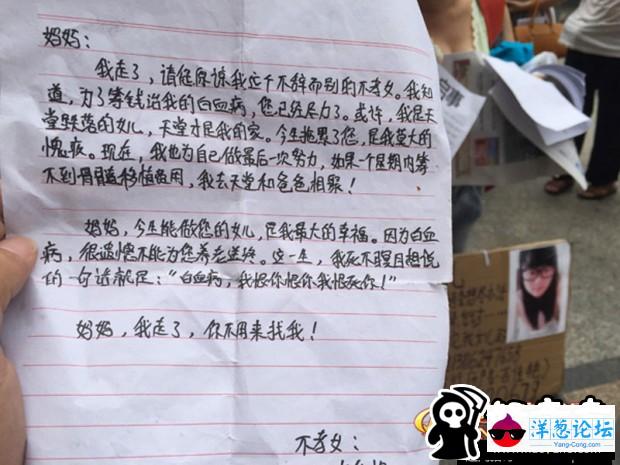 妈妈：
我走了，请您原谅我这个不辞而别的不孝女。我知
道，为了筹钱治我的白血病，您已经尽力了。或许，我是天
堂跌落的女儿，天堂才是我的家。今生拖累了您，是我莫大的
愧疚。现在，我也为自己做最后一次努力，如果一个星期内筹
不到骨髓移植费用，我去天堂和爸爸相聚！
妈妈，今生能做您的女儿，是我最大的幸福。因为白血
病，很遗憾不能为您养老送终。这一生，我死不瞑目想说
的一句话就是：“白血病，我恨你恨你我恨死你！”
妈妈，我走了，你不用来找我！
不孝女：
洋葱论坛
www.Yang-Cong.com